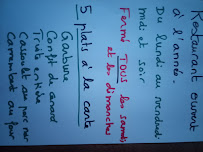 Restaurant ouvert
à l'année.
Du lundi au vendredi
midi et soir
Fermé TOUS les samedi
et les dimanches
5 plats à la carte
Garbure
Confit de canard
Truite entière
Cassoulet au porc noir
Camembert au four